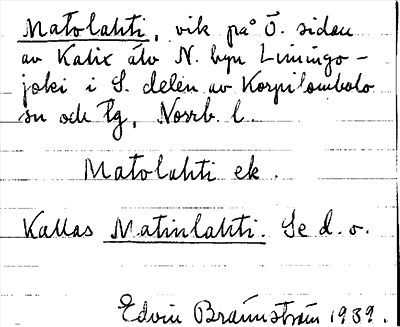 Matolahti, vik på Ö. sidan
av Kalix älv N. byn Limingo-
joki i S. delen av Korpilombolo
sn och tg, Norrb. l.
Matolahti ek.
Kallas Matinlahti. Se d. o.
Edvin Brännström 1939.